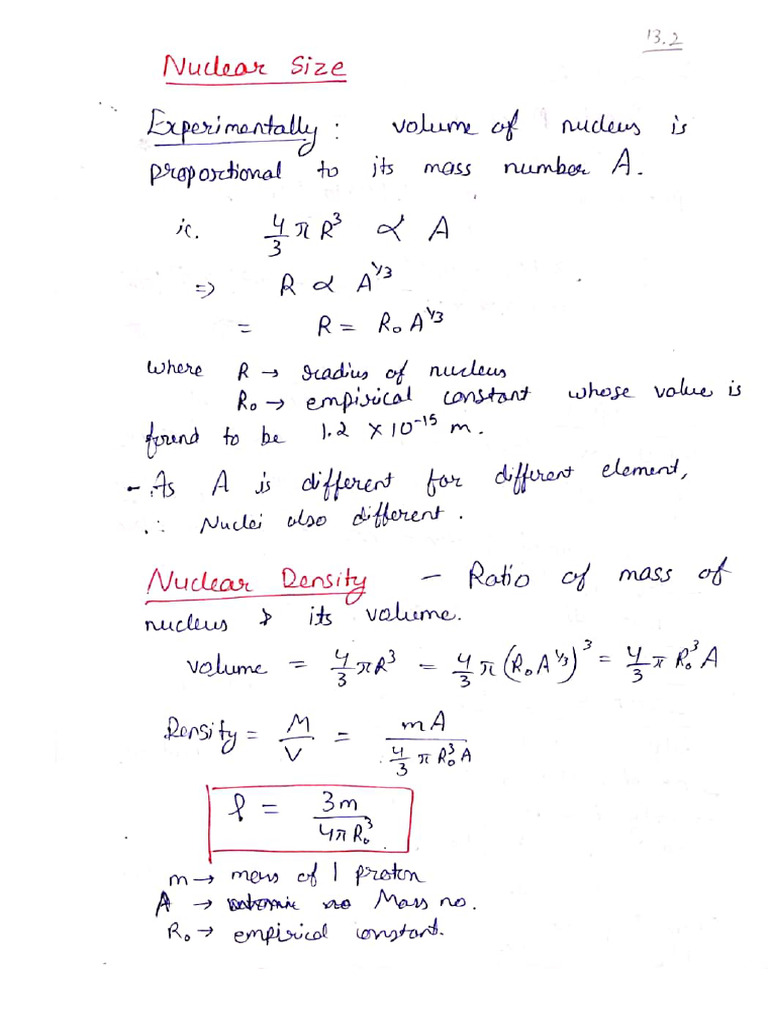 13.2
Nuclear Size
Experimentally : volume of nucleus is
proportional to its mass number A.
ie. 4/3 π R³ ∝ A
=> R ∝ A^1/3
= R = R₀ A^1/3
where R → radius of nucleus
R₀ → empirical constant whose value is
found to be 1.2 × 10⁻¹⁵ m.
- As A is different for different element,
∴ Nuclei also different.
Nuclear Density - Ratio of mass of
nucleus & its volume.
volume = 4/3 πR³ = 4/3 π (R₀A^1/3)³ = 4/3 π R₀³ A
Density = M/V = mA / (4/3 π R₀³ A)
ρ = 3m / 4πR₀³
m → mass of 1 proton
A → Mass no.
R₀ → empirical constant.